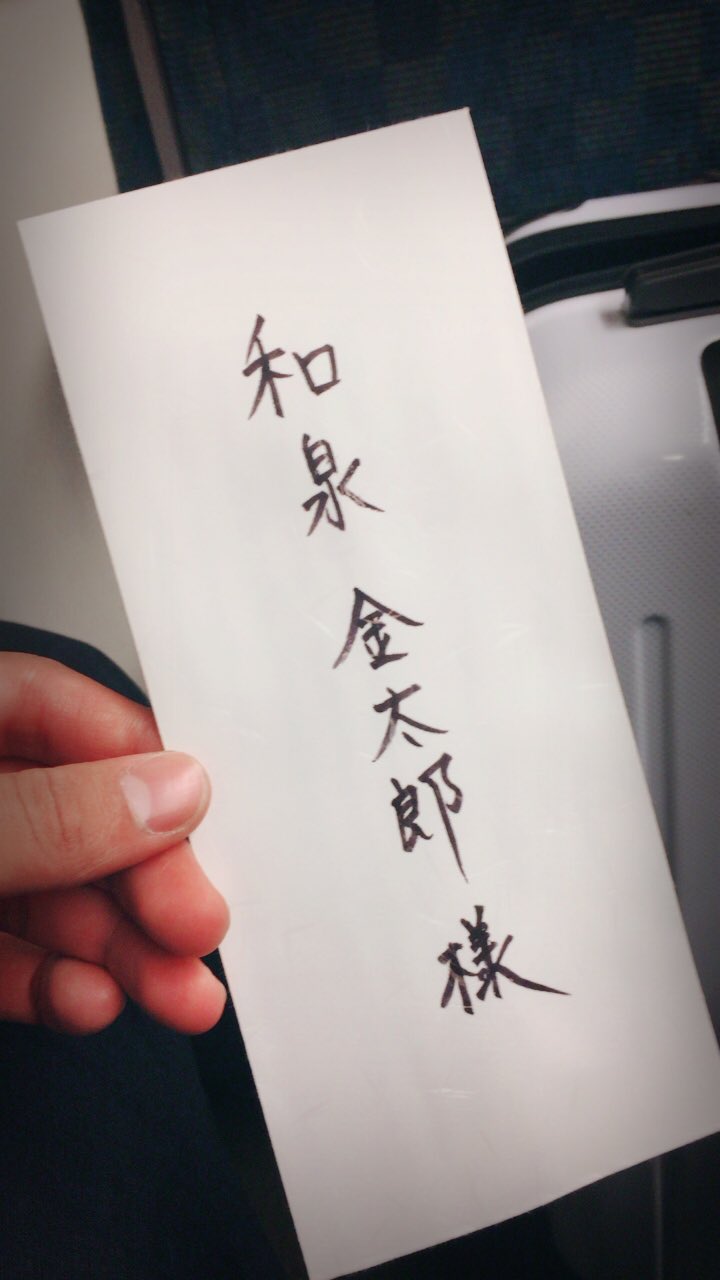 和泉 金太郎 様